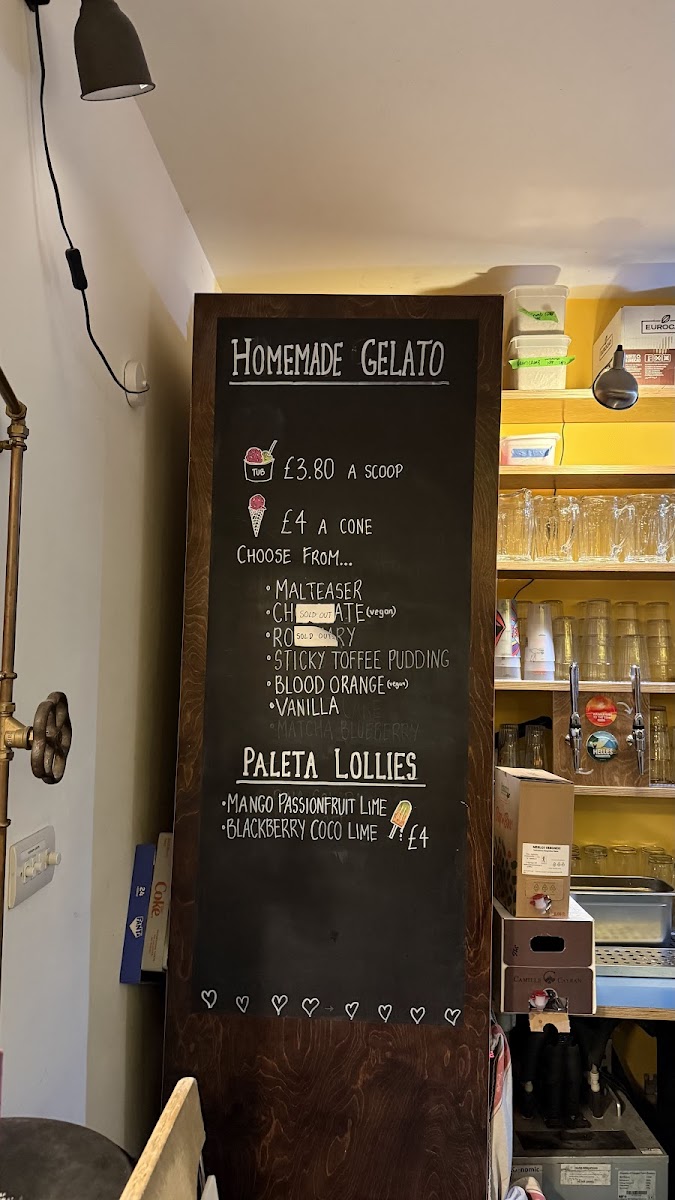 HOMEMADE GELATO
TUB £3.80 A SCOOP
£4 A CONE
CHOOSE FROM...
• MALTEASER
• CH SOLD OUT ATE (vegan)
• RO SOLD OUT RY
• STICKY TOFFEE PUDDING
• BLOOD ORANGE (vegan)
• VANILLA
• MATCHA BLUEBERRY
PALETA LOLLIES
• MANGO PASSIONFRUIT LIME
• BLACKBERRY COCO LIME £4
24
FANTA
Coke
HELLES